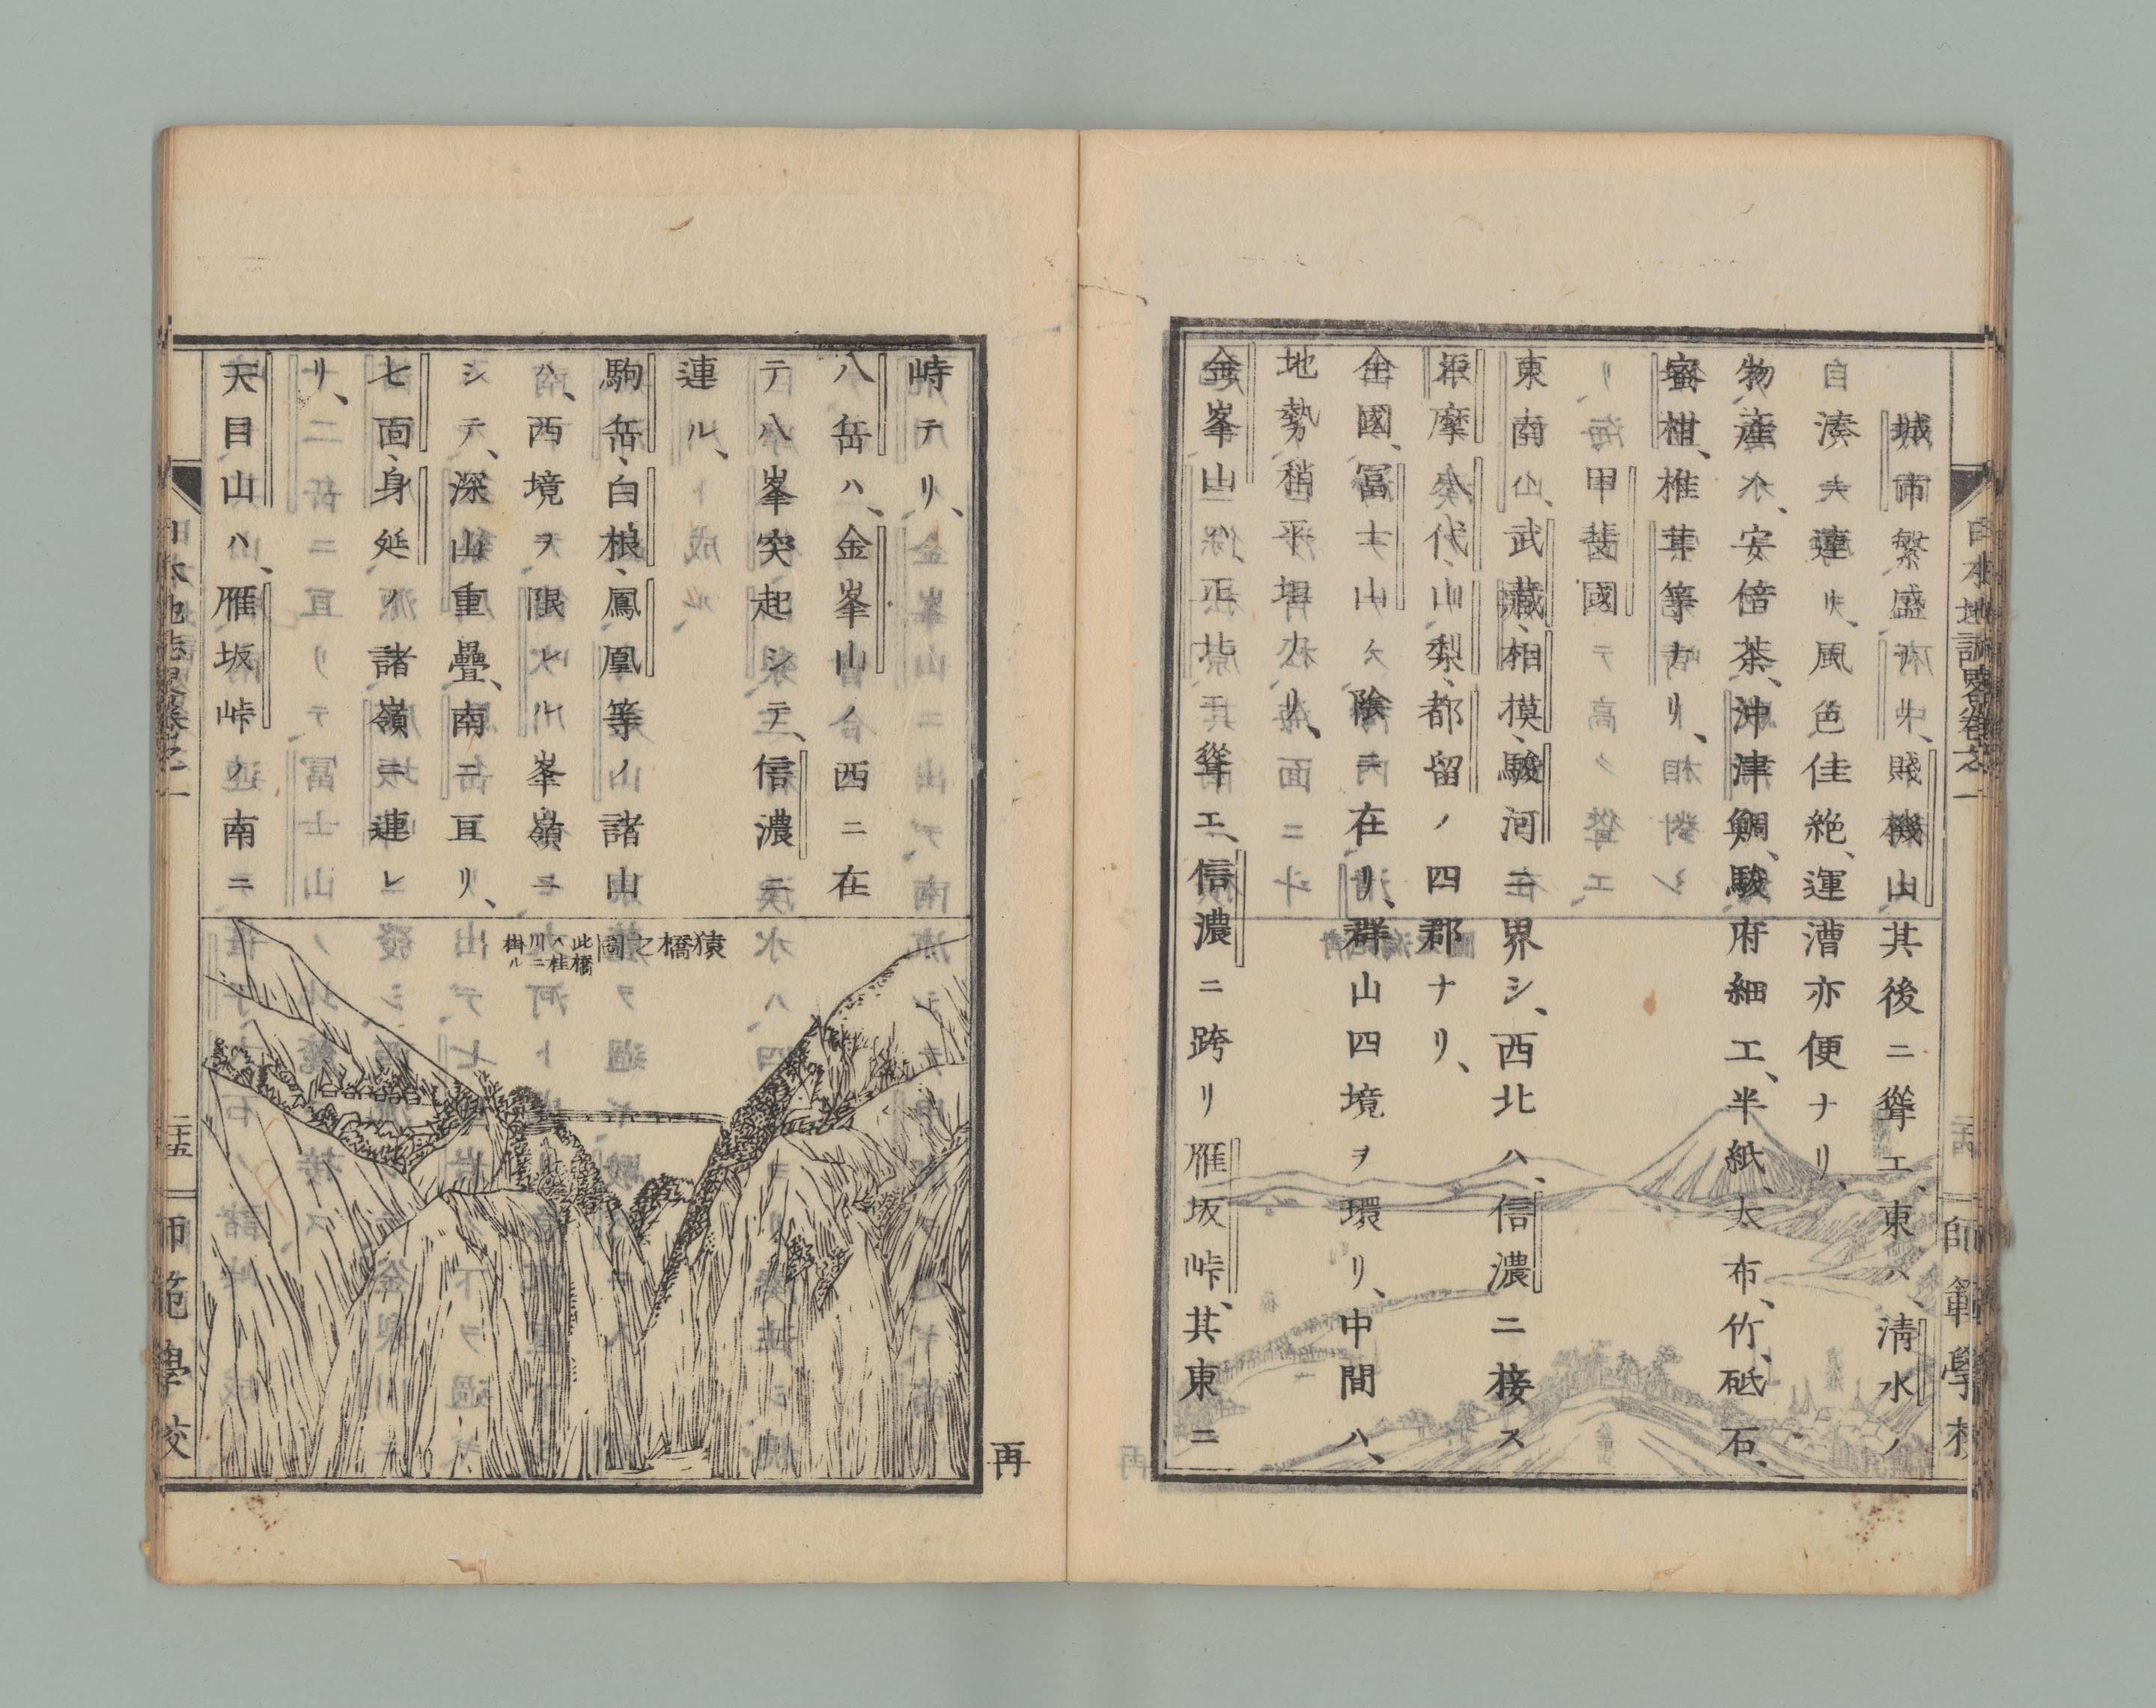 日本地誌略卷之一 二十四 師範學校
城市繁盛ナリ、賤機山其後ニ聳エ、東ハ、清水ノ
湊ニ連リ、風色佳絶、運漕亦便ナリ、
物産ハ、安倍茶、沖津鯛、駿府細工、半紙、太布、竹、砥石、
蜜柑、椎茸等ナリ、
甲斐國
東南ハ、武藏、相模、駿河ニ界シ、西北ハ、信濃ニ接ス
巨摩、八代、山梨、都留ノ四郡ナリ、
全國、冨士山ノ陰ニ在リ、群山四境ヲ環リ、中間ハ、
地勢稍平坦ナリ、
金峯山ハ、正北ニ聳エ、信濃ニ跨リ雁坂峠、其東ニ
再
峙テリ、
八岳ハ、金峯山ノ西ニ在
テ八峯突起シテ、信濃ニ
連ル、
駒岳、白根、鳳凰等ノ諸山
ハ、西境ヲ限ル、峯嶺ニ
シテ、深山重疊、南ニ亙リ、
七面、身延ノ諸嶺ニ連レ
リ、
天目山ハ、雁坂峠ノ南ニ
猿橋之圖
此橋
ハ桂
川ニ
掛ル
日本地誌略卷之一 二十五 師範學校